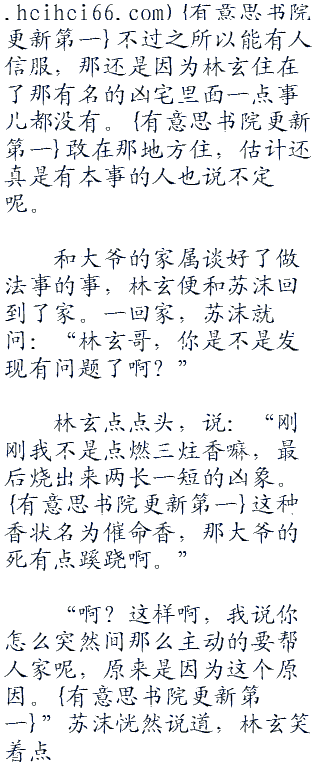 .hcihci66.com) {有意思书院
更新第一} 不过之所以能有人
信服，那还是因为林玄住在
了那有名的凶宅里面一点事
儿都没有。{有意思书院更新
第一} 敢在那地方住，估计还
真是有本事的人也说不定
呢。
和大爷的家属谈好了做
法事的事，林玄便和苏沫回
到了家。一回家，苏沫就
问：“林玄哥，你是不是发
现有问题了啊？”
林玄点点头，说：“刚
刚我不是点燃三炷香嘛，最
后烧出来两长一短的凶象。
{有意思书院更新第一} 这种
香状名为催命香，那大爷的
死有点蹊跷啊。”
“啊？这样啊，我说你
怎么突然间那么主动的要帮
人家呢，原来是因为这个原
因。{有意思书院更新第
一}”苏沫恍然说道，林玄笑
着点